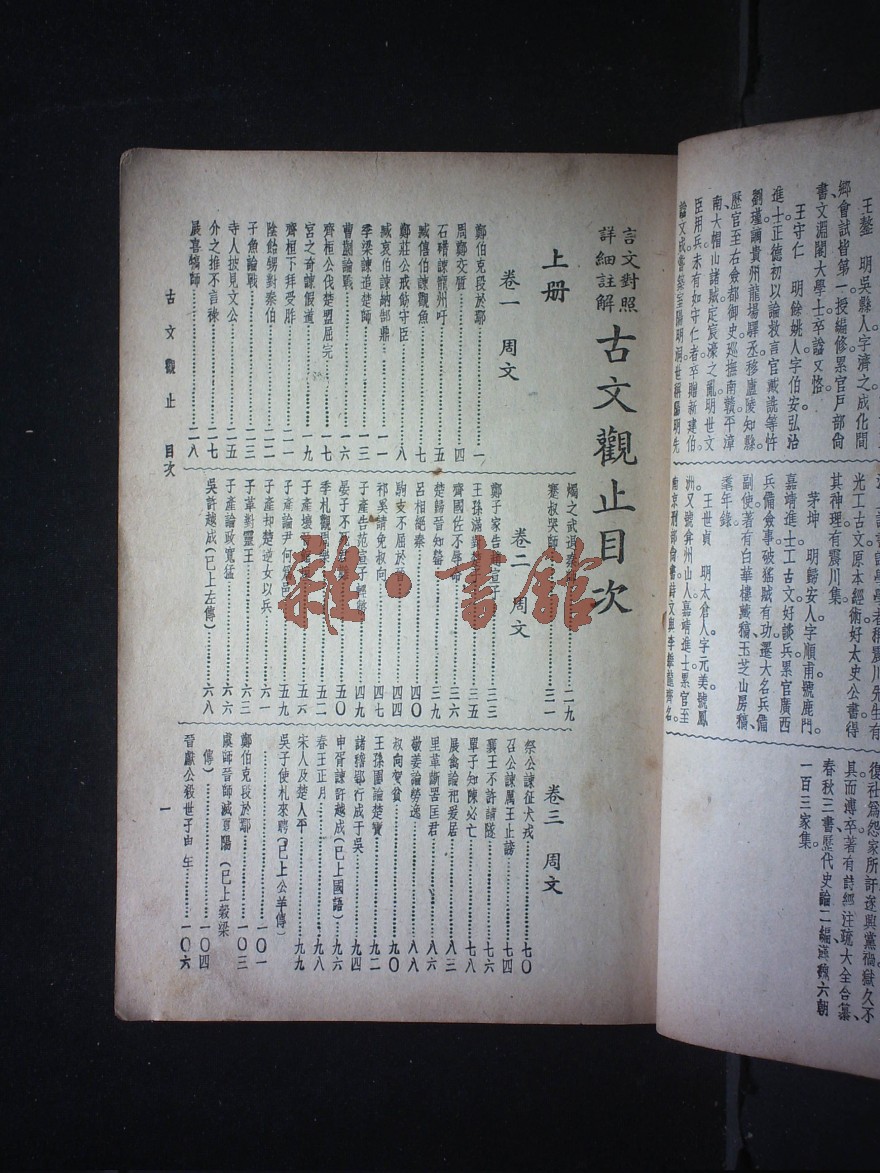 王鏊　明吳縣人字濟之成化間
鄉會試皆第一授編修累官戶部尙
書文淵閣大學士卒諡文恪。
王守仁　明餘姚人字伯安弘治
進士正德初以論救言官戴銑等忤
劉瑾謫貴州龍場驛丞移廬陵知縣。
歷官至右僉都御史巡撫南贛平漳
南大帽山諸賊定宸濠之亂明世文
臣用兵未有如守仁者卒贈新建伯。
諡文成
光工古文原本經術好太史公書得
其神理有震川集。
茅坤　明歸安人字順甫號鹿門。
嘉靖進士工古文好談兵累官廣西
兵備僉事破猺賊有功遷大名兵備
副使著有白華樓藏稿、玉芝山房稿、
耄年錄。
王世貞　明太倉人字元美號鳳
洲又號弇州山人嘉靖進士累官至
南京刑部尙書
復社爲怨家所訐遂興黨禍獄久不
具而溥卒著有詩經注疏大全合纂、
春秋三書、歷代史論二編、漢魏六朝
一百三家集
言文對照
詳細註解
古文觀止目次
上册
卷一　周文
鄭伯克段於鄢……一
周鄭交質……四
石碏諫寵州吁……五
臧僖伯諫觀魚……七
鄭莊公戒飭守臣……八
臧哀伯諫納郜鼎……一一
季梁諫追楚師……一三
曹劌論戰……一六
齊桓公伐楚盟屈完……一七
宮之奇諫假道……一九
齊桓下拜受胙……二一
陰飴甥對秦伯……二二
子魚論戰……二三
寺人披見文公……二五
介之推不言祿……二七
展喜犒師……二八
燭之武退秦師……二九
蹇叔哭師……三一
卷二　周文
鄭子家告趙宣子……三三
王孫滿對楚子……三五
齊國佐不辱命……三六
楚歸晉知罃……三九
呂相絕秦……四〇
駒支不屈於晉……四四
祁奚請免叔向……四七
子產告范宣子輕幣……四九
晏子不死君難……五〇
季札觀周樂……五二
子產壞晉館垣……五六
子產論尹何爲邑……五九
子產却楚逆女以兵……六一
子革對靈王……六三
子產論政寬猛……六六
吳許越成(已上左傳)……六八
卷三　周文
祭公諫征犬戎……七〇
召公諫厲王止謗……七四
襄王不許請隧……七六
單子知陳必亡……七八
展禽論祀爰居……八三
里革斷罟匡君……八六
敬姜論勞逸……八八
叔向賀貧……九〇
王孫圉論楚寶……九二
諸稽郢行成于吳……九四
申胥諫許越成(已上國語)……九六
春王正月……九八
宋人及楚人平……九九
吳子使札來聘(已上公羊傳)
……一〇一
鄭伯克段於鄢……一〇三
虞師晉師滅夏陽(已上穀梁
傳)……一〇四
晉獻公殺世子申生……一〇六
古文觀止　目次
一
雜·書館